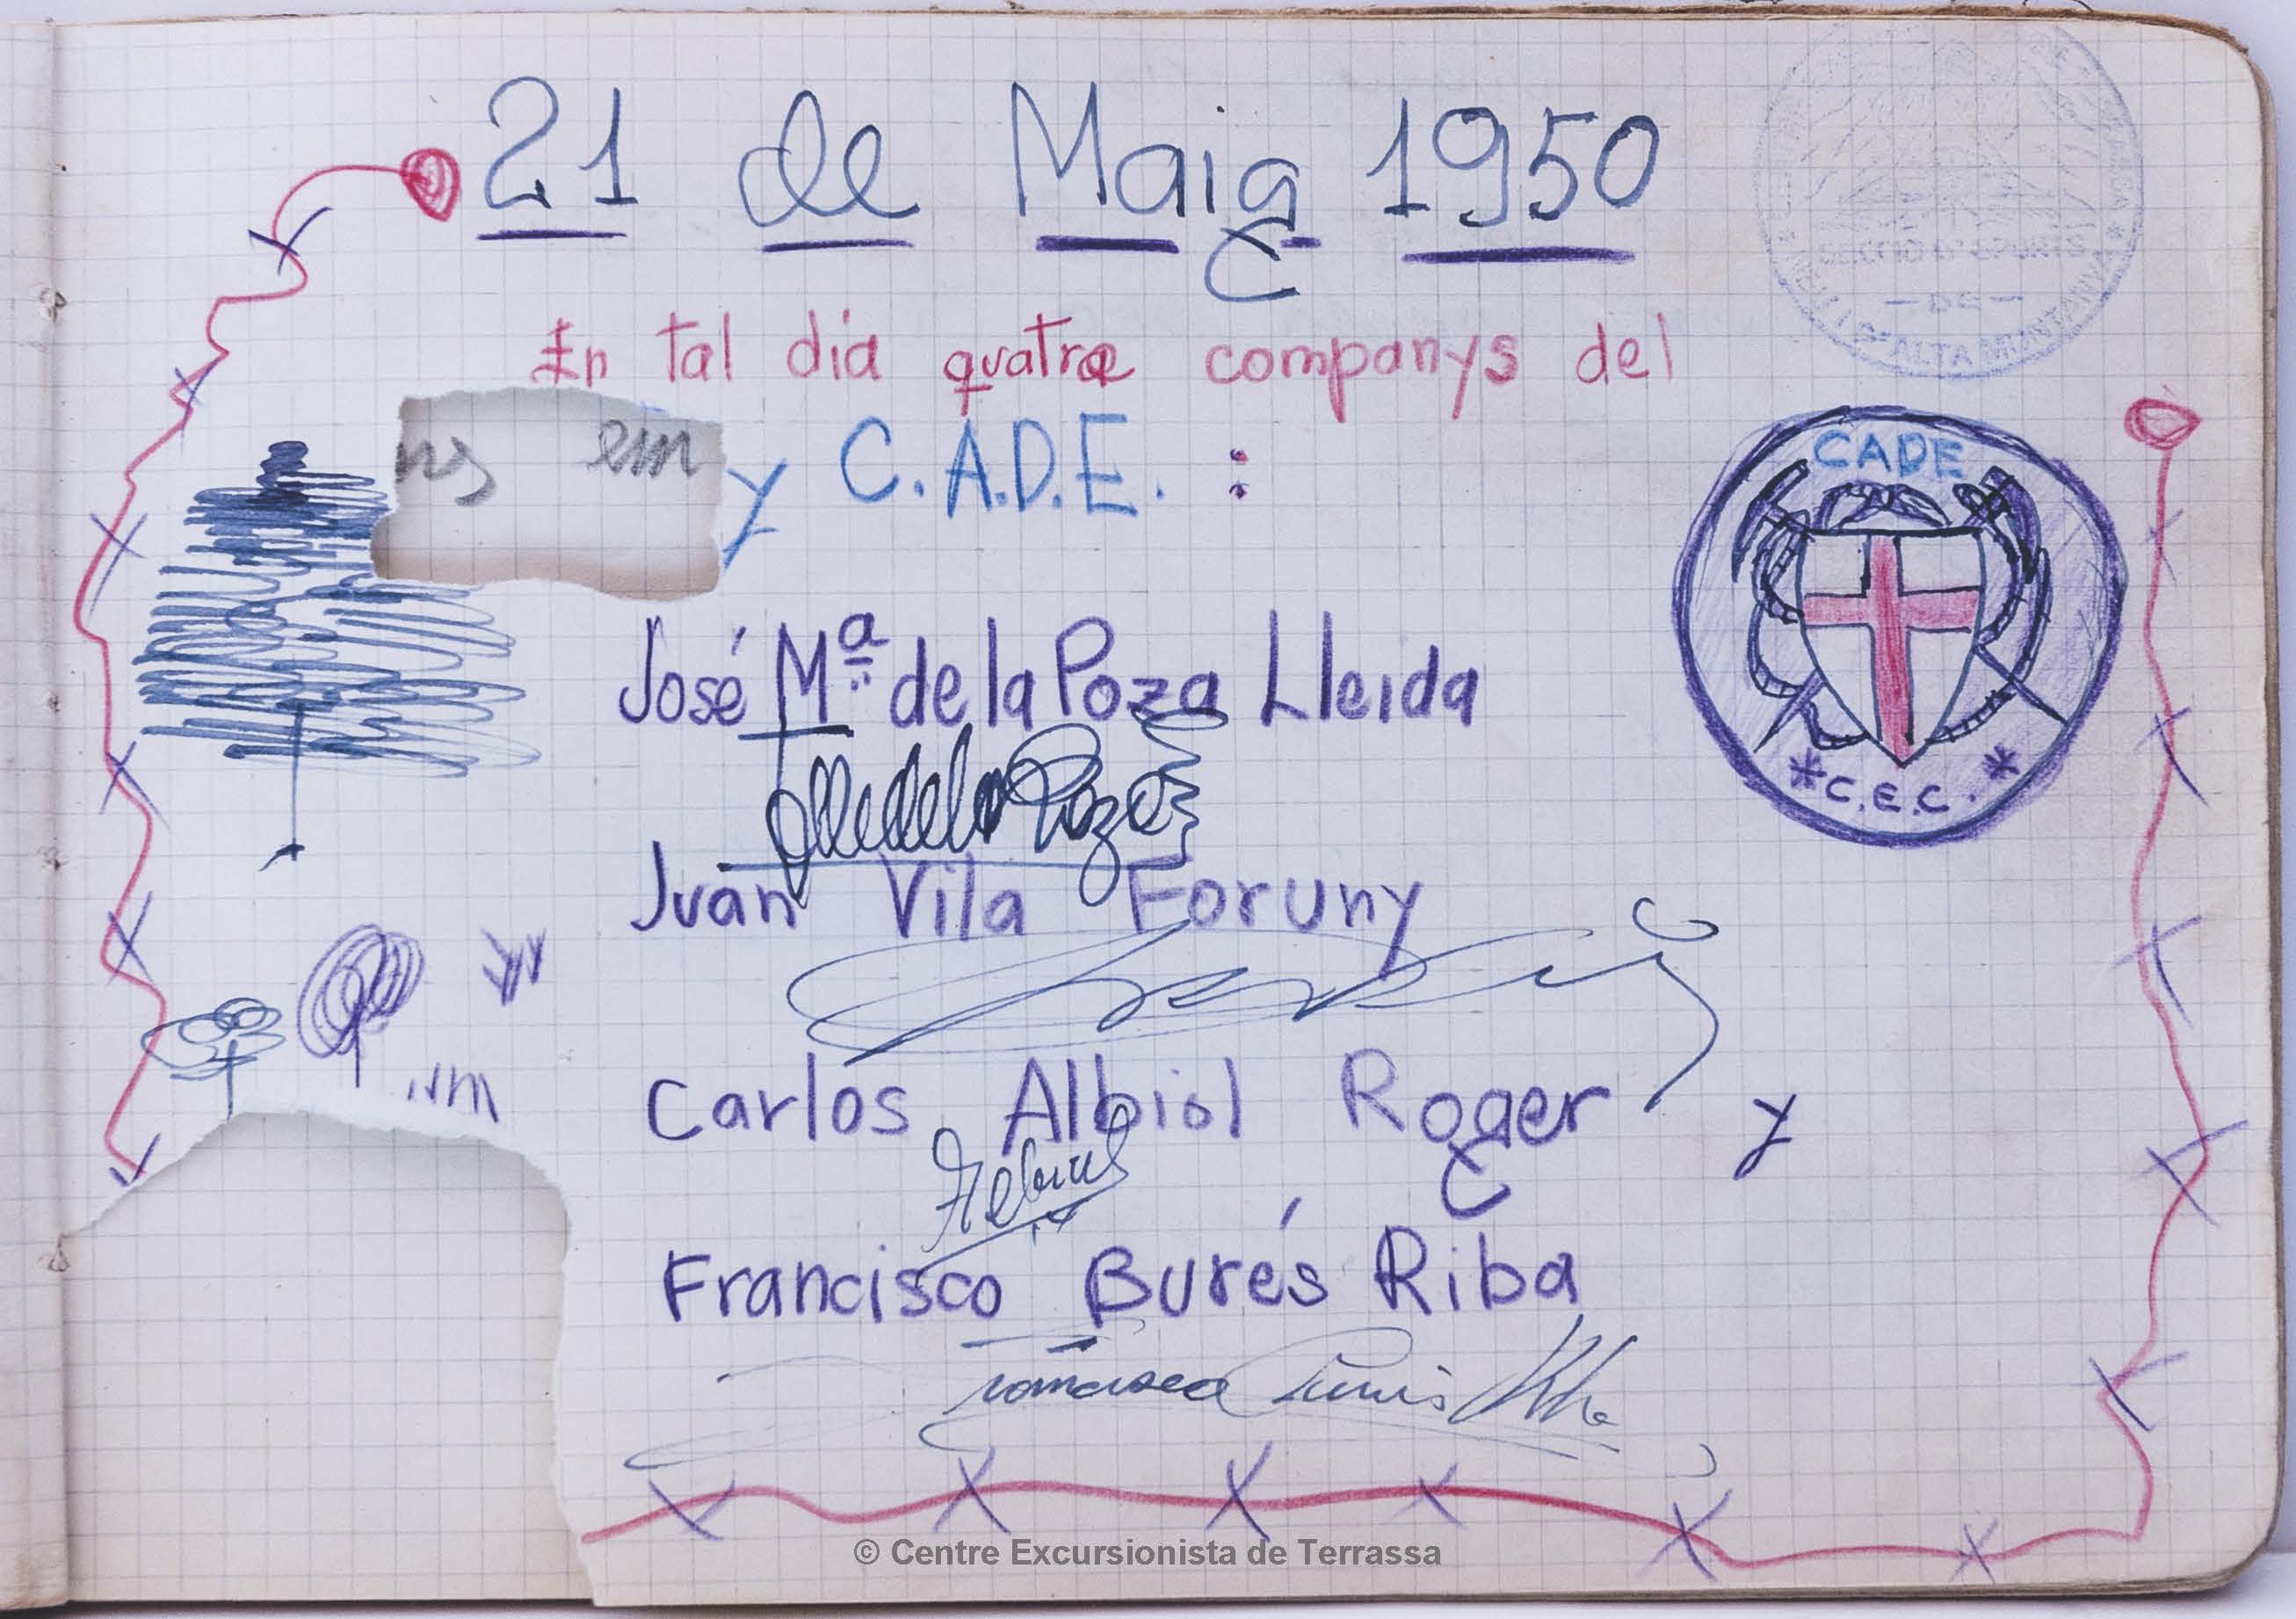 21 de Maig 1950
En tal dia quatre companys del
ns em y C.A.D.E. :
CADE
* C.E.C. *
SECCIO D'ESPORTS
- DE -
D'ALTA MUNTANYA
José Mª de la Poza Lleida
Juan Vila Foruny
Carlos Albiol Roger y
Francisco Burés Riba
© Centre Excursionista de Terrassa